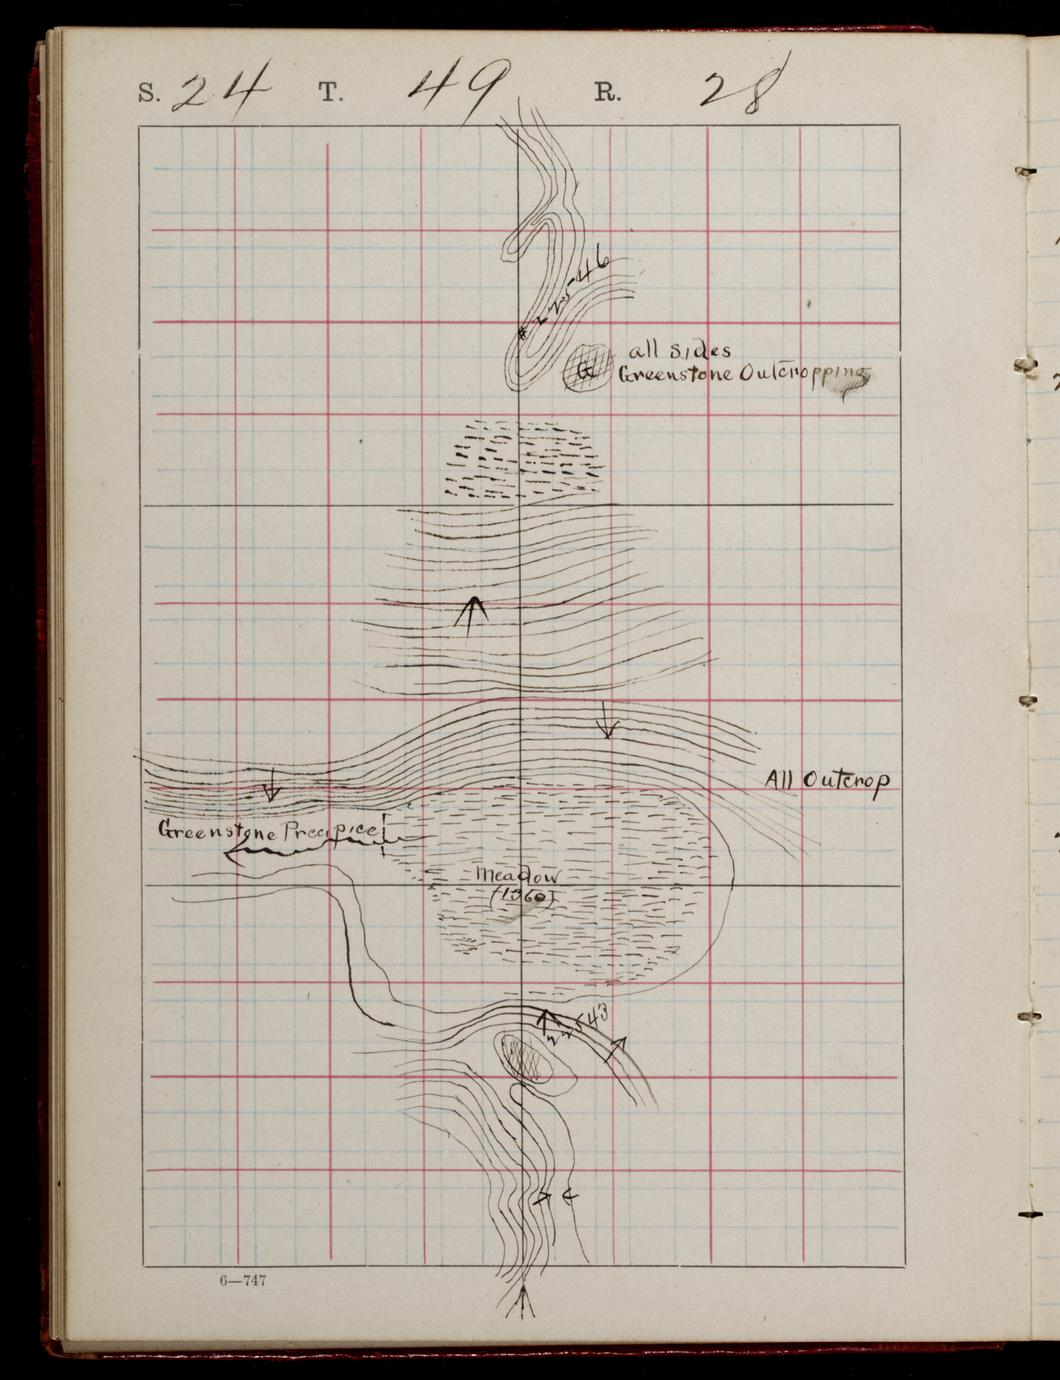 S. 24 T. 49 R. 28
22546
all sides
G Greenstone Outcropping
All Outcrop
Greenstone Precipice
Meadow
(1360)
22543
6—747